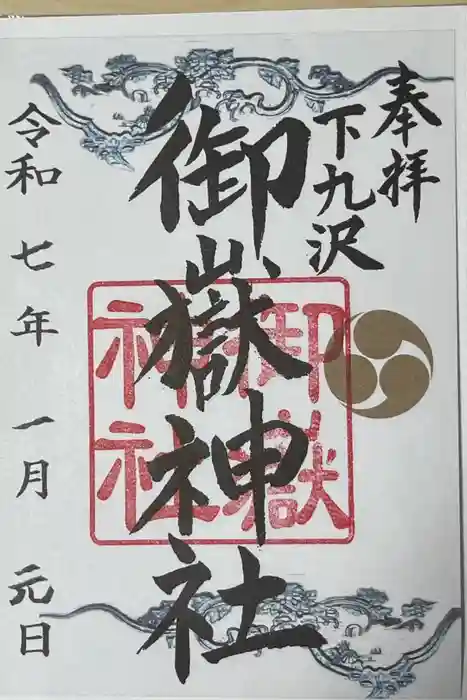 奉拝
下九沢
御嶽神社
御嶽
神社
令和七年一月元日